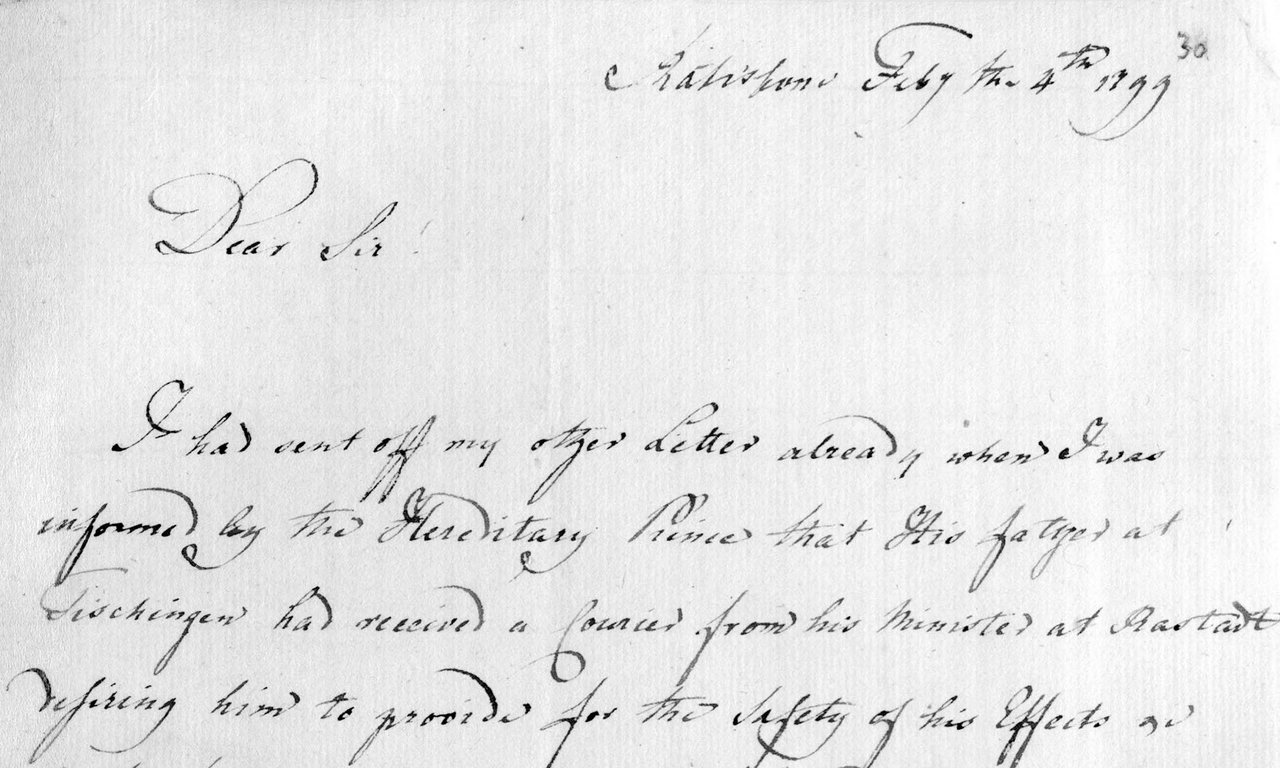 30
Ratisbone Feby the 4th 1799
Dear Sir!
I had sent off my other Letter already when I was
informed by the Hereditary Prince that His father at
Tischingen had received a Courier from his Minister at Rastadt
desiring him to provide for the Safety of his Effects &c